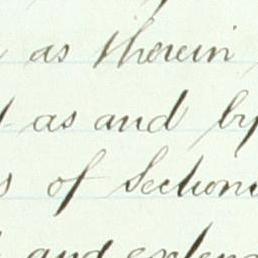 as therein
as and by
of Section
and